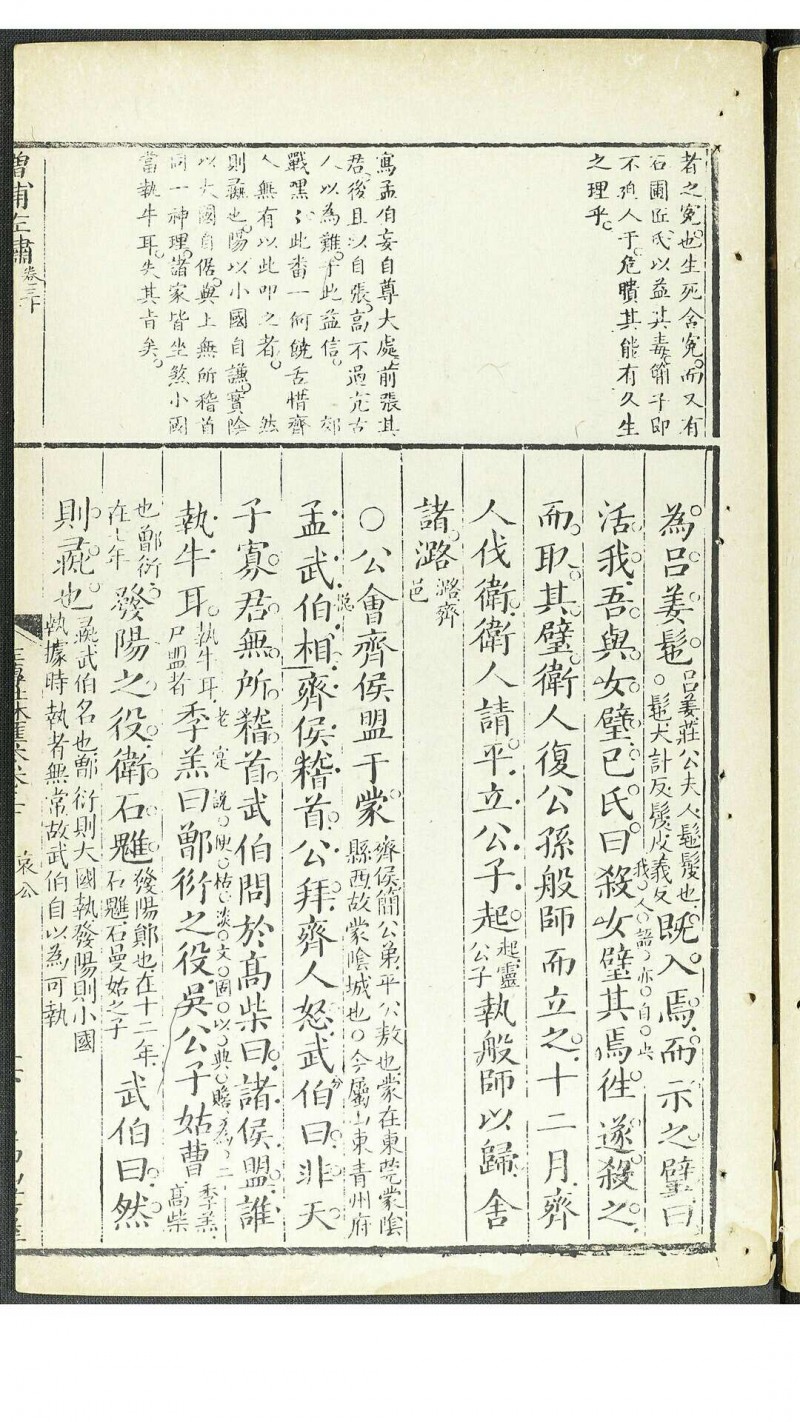 者之冤也生死含冤而又有
石圃匠氏以益其毒簡子即
不殉人于危瞶其能有久生
之理乎
寫孟伯妄自尊大處前張其
君後且以自張高不過亢古
人以為難于此益信 郊
戰嘿嘿此番一何饒舌惜齊
人無有以此叩之者 然
則彘也陽以小國自謙實陰
以大國自居與上無所稽首
同一神理諸家皆坐煞小國
當執牛耳失其旨矣
增補左繡 卷三十
為呂姜髢 呂姜莊公夫人髢髲也
○髢大計反髲皮義反 既入焉而示之璧曰
活我吾與女璧已氏曰殺女璧其焉往遂殺之
而取其璧衛人復公孫般師而立之十二月齊
人伐衛衛人請平立公子起 起靈
公子 執般師以歸舍
諸潞 潞齊
邑
○公會齊侯盟于蒙 齊侯簡公弟平公敖也蒙在東莞蒙陰
縣西故蒙陰城也○今屬山東青州府
孟武伯相齊侯稽首公拜齊人怒武伯曰非天
子寡君無所稽首武伯問於高柴曰諸侯盟誰
執牛耳 執牛耳
尸盟者 季羔曰鄫衍之役吳公子姑曹 季羔
高柴
也鄫衍
在七年 發陽之役衛石魋 發陽鄖也在十二年
石魋石曼姑之子 武伯曰然
則彘也 彘武伯名也鄫衍則大國執發陽則小國
執據時執者無常故武伯自以為可執
哀公